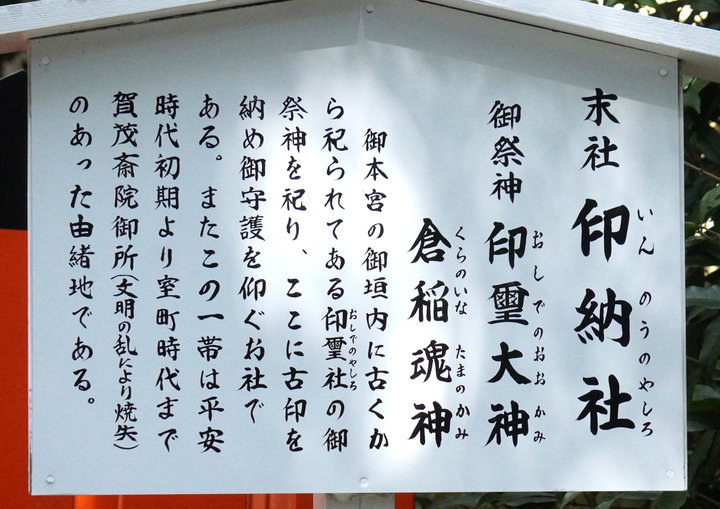 末社 印納社
いん のうのやしろ
御祭神 印璽大神
おしでのおお かみ
倉稲魂神
くらのいな たまのかみ
御本宮の御垣内に古くか
ら祀られてある印璽社の御
おしでのやしろ
祭神を祀り、ここに古印を
納め御守護を仰ぐお社で
ある。またこの一帯は平安
時代初期より室町時代まで
賀茂斎院御所(文明の乱により焼失)
のあった由緒地である。